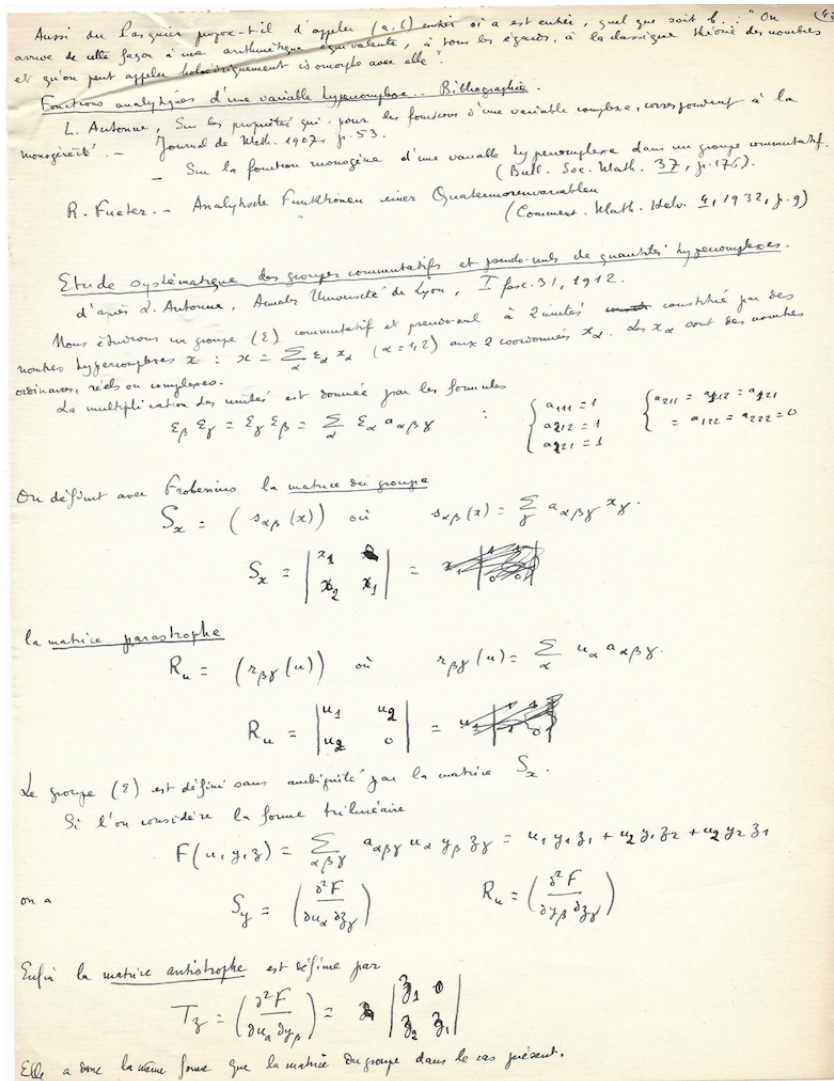 Aussi du Pasquier propose-t-il d'appeler (a, b) entier si a est entier, quel que soit b. : "On
arrive de cette façon à une arithmétique équivalente, à tous les égards, à la classique théorie des nombres
et qu'on peut appeler holoédriquement isomorphe avec elle".
Fonctions analytiques d'une variable hypercomplexe. Bibliographie.
L. Autonne, Sur les propriétés qui, pour les fonctions d'une variable complexe, correspondent à la
monogénéité. - Journal de Math. 1907, p. 53.
- Sur la fonction monogène d'une variable hypercomplexe dans un groupe commutatif.
(Bull. Soc. Math. 37, p. 176).
R. Fueter. - Analytische Funktionen einer Quaternionenvariablen
(Comment. Math. Helv. 4, 1932, p. 9)
Etude systématique des groupes commutatifs et pseudo-nuls de quantités hypercomplexes.
d'après L. Autonne, Annales Université de Lyon, I fasc. 31, 1912.
Nous étudirons un groupe (ε) commutatif et pseudo-nul à 2 unités constitué par des
nombres hypercomplexes x : x = ∑α εα xα (α = 1, 2) aux 2 coordonnées xα. Les xα sont des nombres
ordinaires, réels ou complexes.
La multiplication des unités est donnée par les formules
εβ εγ = εγ εβ = ∑α εα aαβγ : { a111 = 1 a212 = 1 a221 = 1 { a211 = a112 = a121 = a122 = a222 = 0
On définit avec Frobenius la matrice du groupe
Sx = (sαβ(x)) où sαβ(x) = ∑γ aαβγ xγ.
Sx = | x1 0 | =
| x2 x1 |
la matrice parastrophe
Ru = (rβγ(u)) où rβγ(u) = ∑α uα aαβγ.
Ru = | u1 u2 | =
| u2 0 |
Le groupe (ε) est défini sans ambiguité par la matrice Sx.
Si l'on considère la forme trilinéaire
F(u, y, z) = ∑αβγ aαβγ uα yβ zγ = u1 y1 z1 + u2 y1 z2 + u2 y2 z1
on a Sy = (∂²F / ∂uα ∂zγ) Ru = (∂²F / ∂yβ ∂zγ)
Enfin la matrice antistrophe est définie par
Tz = (∂²F / ∂uα ∂yβ) = | z1 0 |
| z2 z1 |
Elle a donc la même forme que la matrice du groupe dans le cas présent.